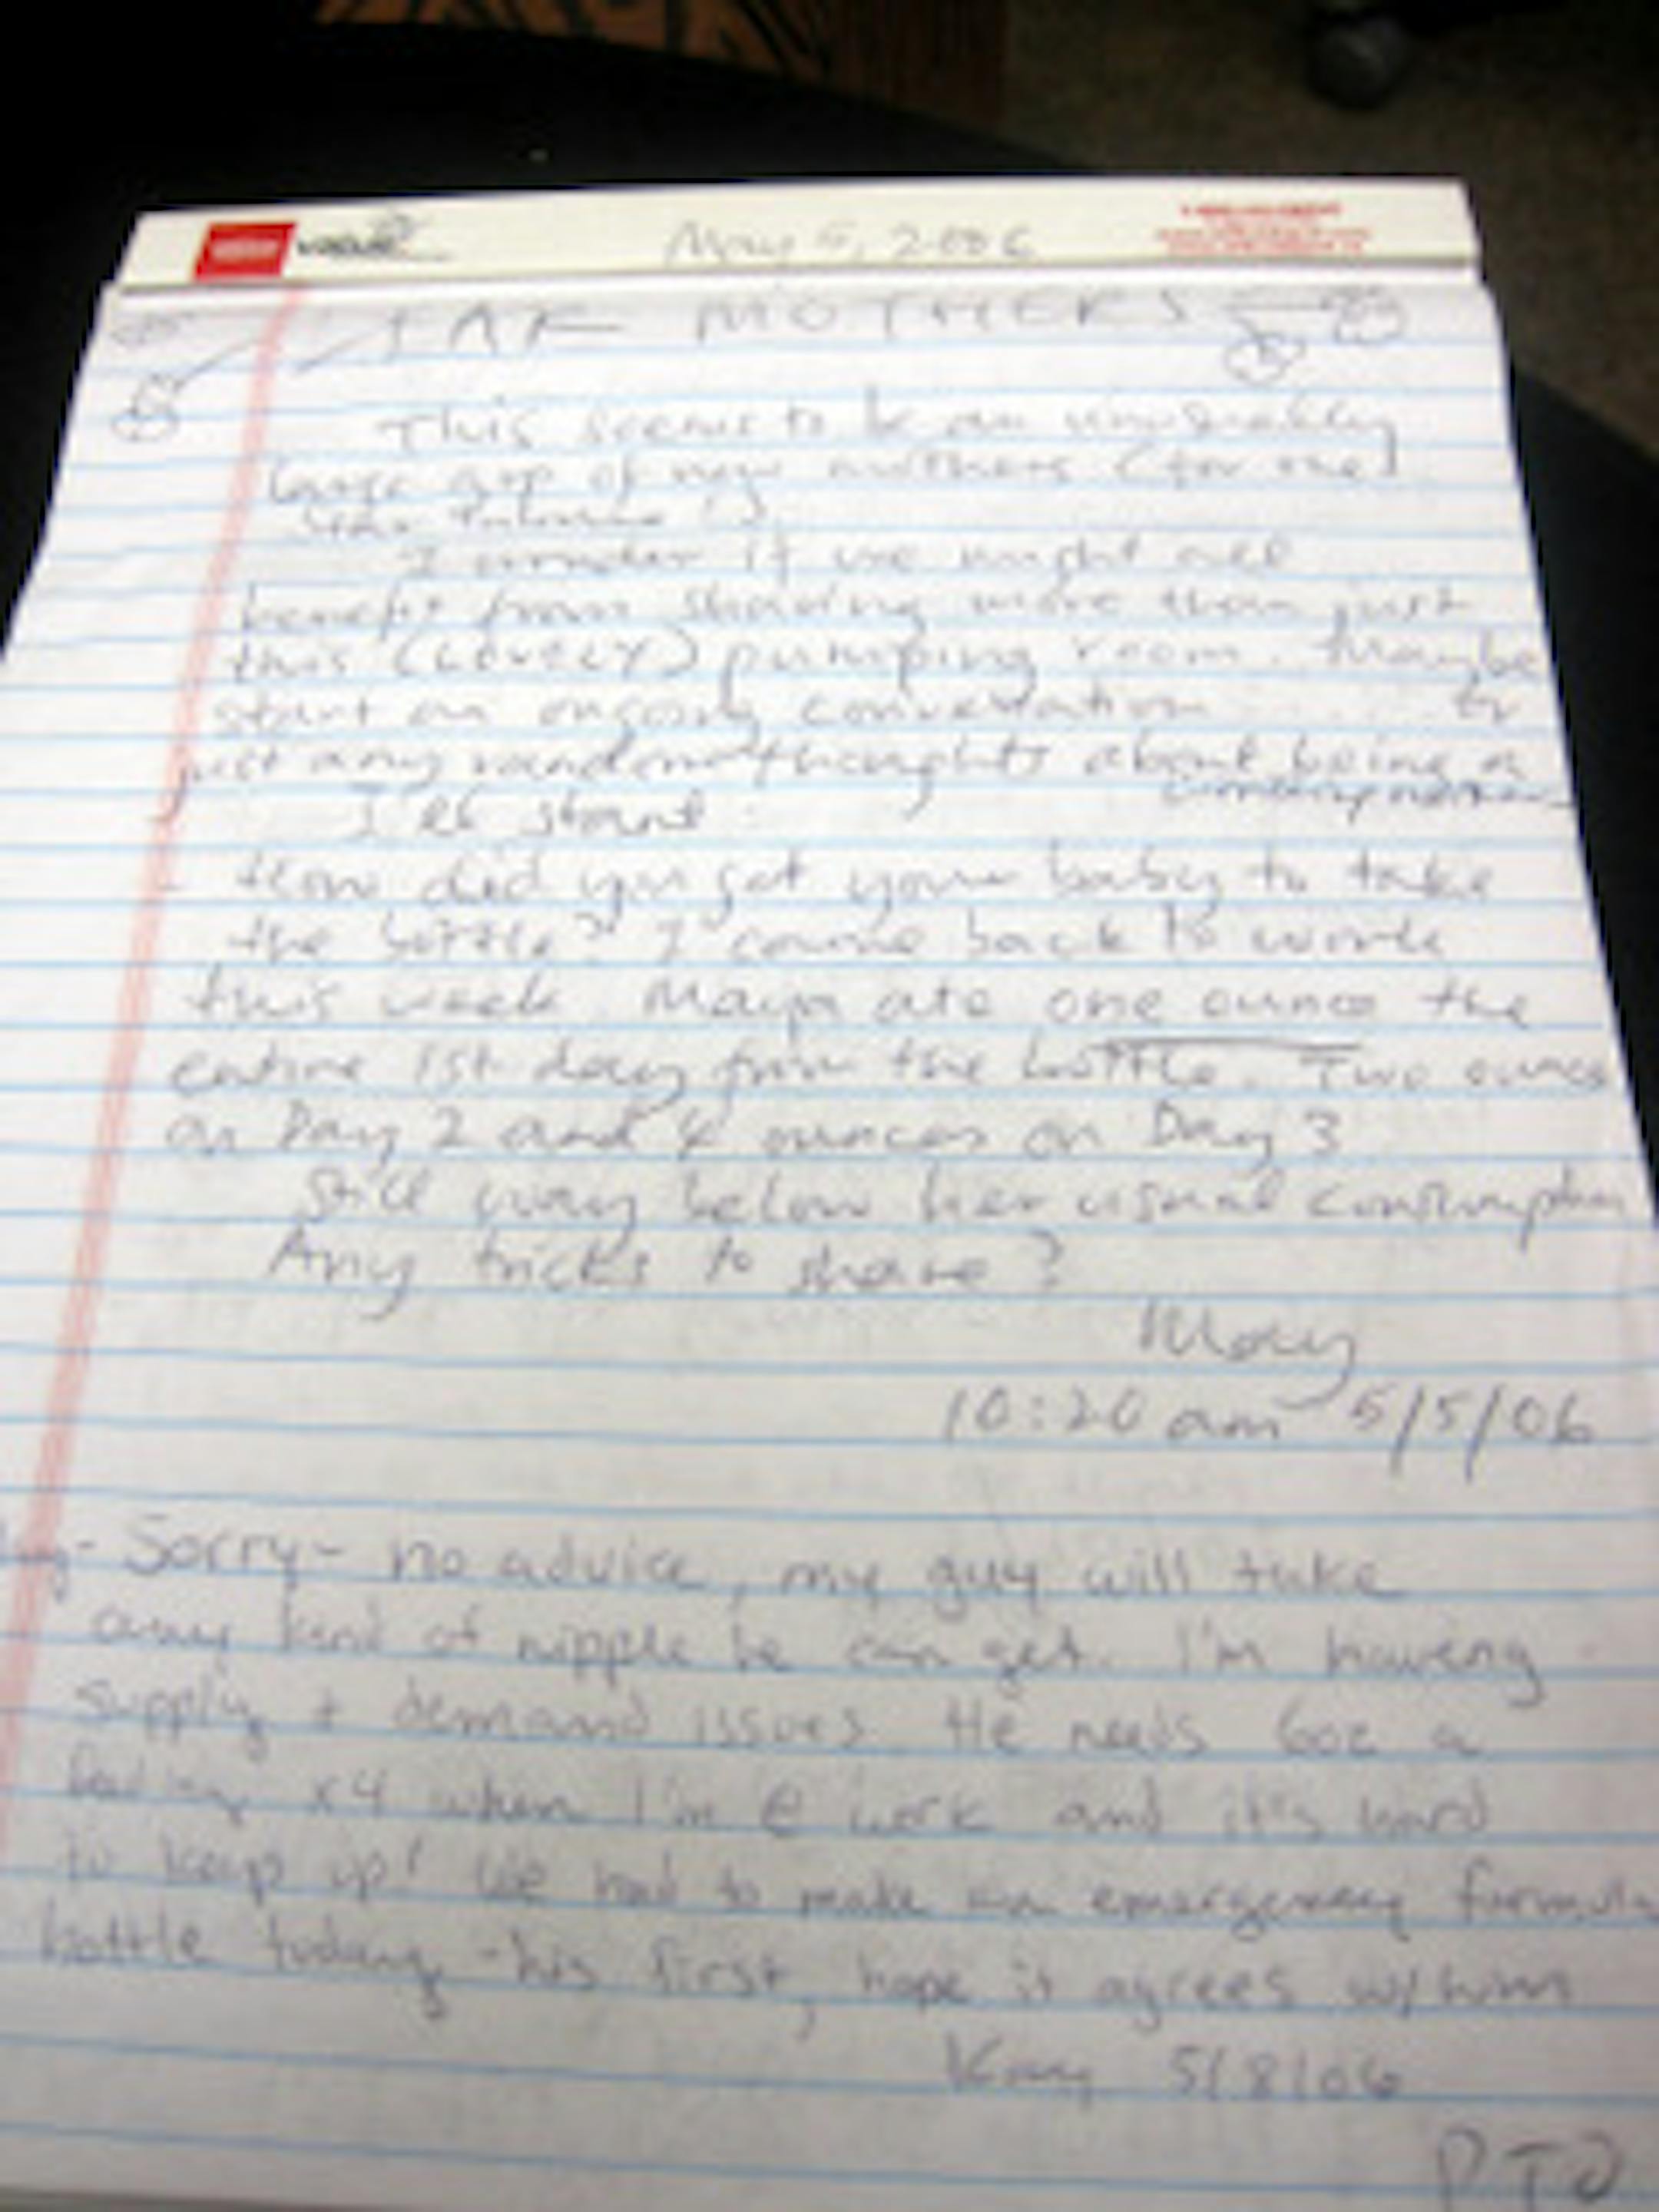 May 5, 2006
MOTHERS
This seems to be an unusually
large grp of new mothers (for one
I wonder if we might all
benefit from sharing more than just
this (LOVELY) pumping room. Maybe
start an ongoing conversation .... Or
just any random thoughts about being a
I'll start:
How did you get your baby to take
the bottle? I came back to work
this week. Maya ate one ounce the
entire 1st day from the bottle. Two ounces
on Day 2 and 4 ounces on Day 3
Still way below her usual consumption
Any tricks to share?
10:20 am 5/5/06
Sorry - no advice, my guy will take
any kind of nipple he can get. I'm having
supply + demand issues He needs 6oz a
feeding x4 when I'm @ work and it's hard
to keep up! We had to make an emergency formula
bottle today - his first, hope it agrees w/him
Kay 5/8/06
PTO